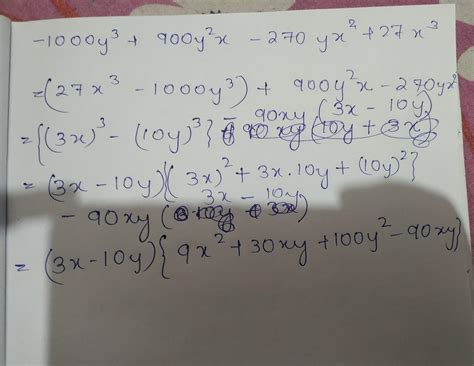 -1000y³ + 900y²x - 270 yx² + 27x³
= (27x³ - 1000y³) + 900y²x - 270yx²
= {(3x)³ - (10y)³} - 90xy (3x - 10y)
= (3x - 10y) {(3x)² + 3x.10y + (10y)²}
- 90xy (3x - 10y)
= (3x - 10y) {9x² + 30xy + 100y² - 90xy}